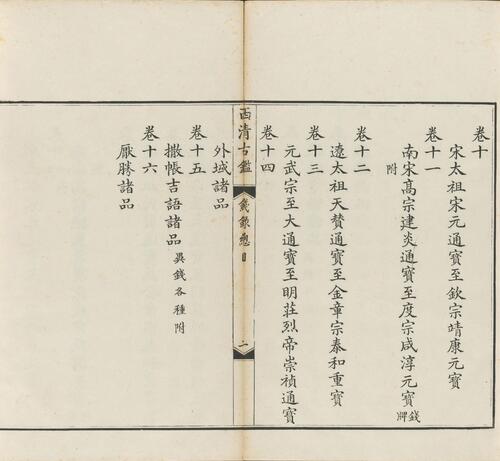 卷十
宋太祖宋元通寶至欽宗靖康元寶
卷十一
南宋髙宗建炎通寶至度宗咸淳元寶 錢牌附
卷十二
遼太祖天贊通寶至金章宗泰和重寶
卷十三
元武宗至大通寶至明莊烈帝崇禎通寶
卷十四
西清古鑑 錢錄總目 二
外域諸品
卷十五
撒帳吉語諸品 異錢各種附
卷十六
厭勝諸品